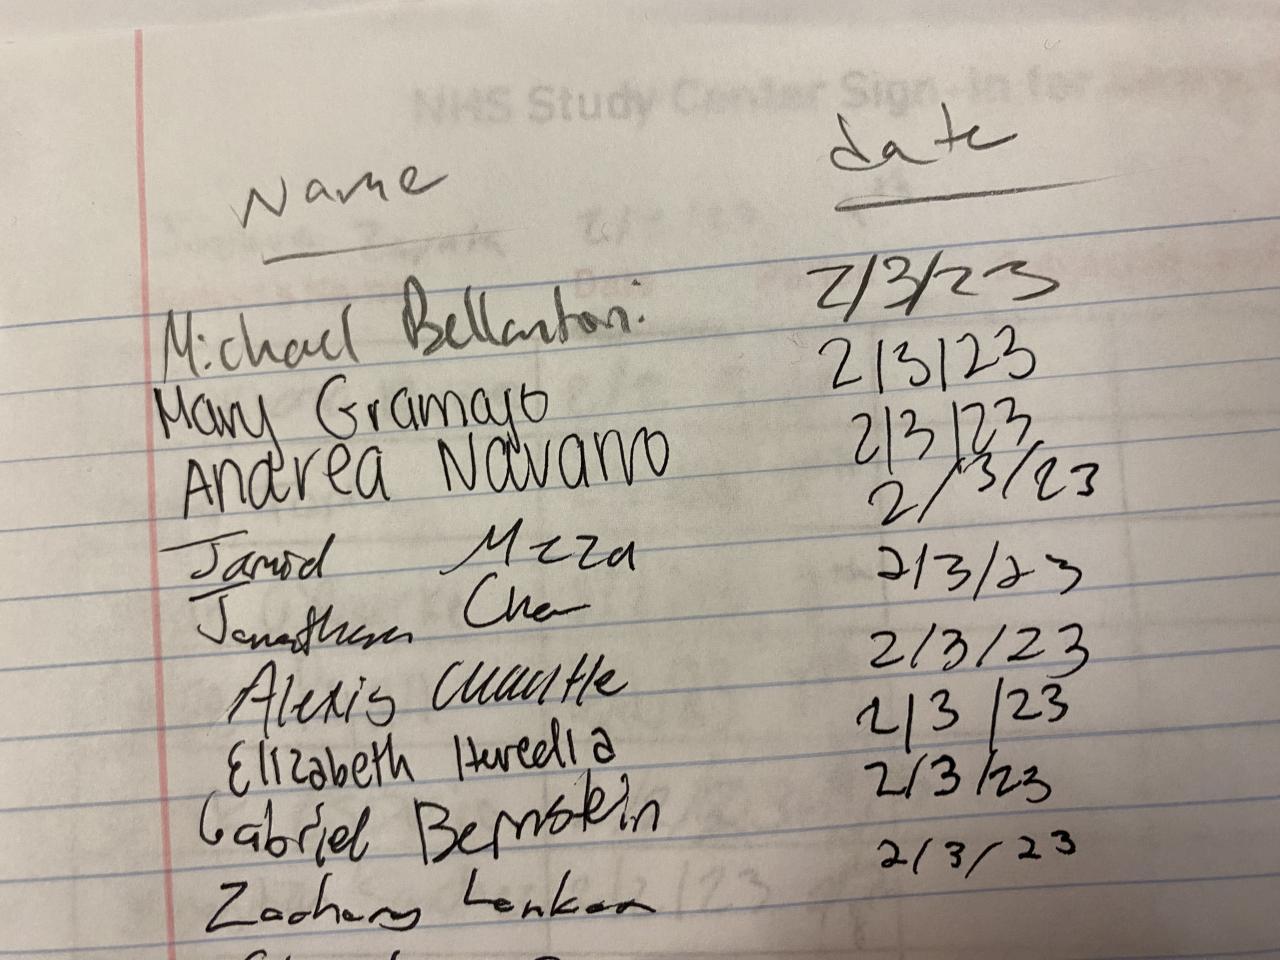 NHS Study Center Sign-in for
Name date
Michael Bellantoni 2/3/23
Mary Gramajo 2/3/23
Andrea Navarro 2/3/23
Jarrod Meza 2/3/23
Jonathan Chen 2/3/23
Alexis 2/3/23
Elizabeth Heredia 2/3/23
Gabriel Bernstein 2/3/23
Zachary 2/3/23